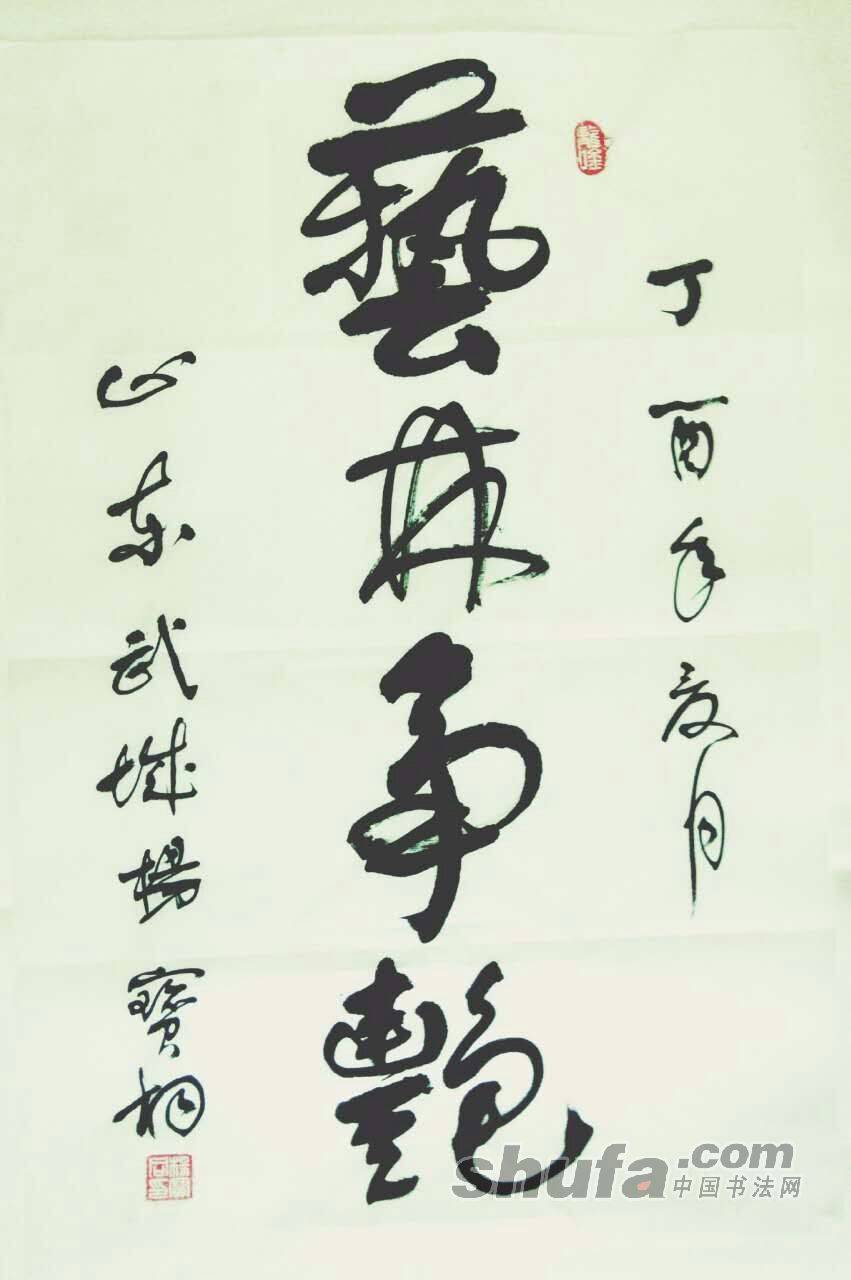 丁酉年夏月
藝林争艷
山東武城楊寳桐
shufa.com
中国书法网